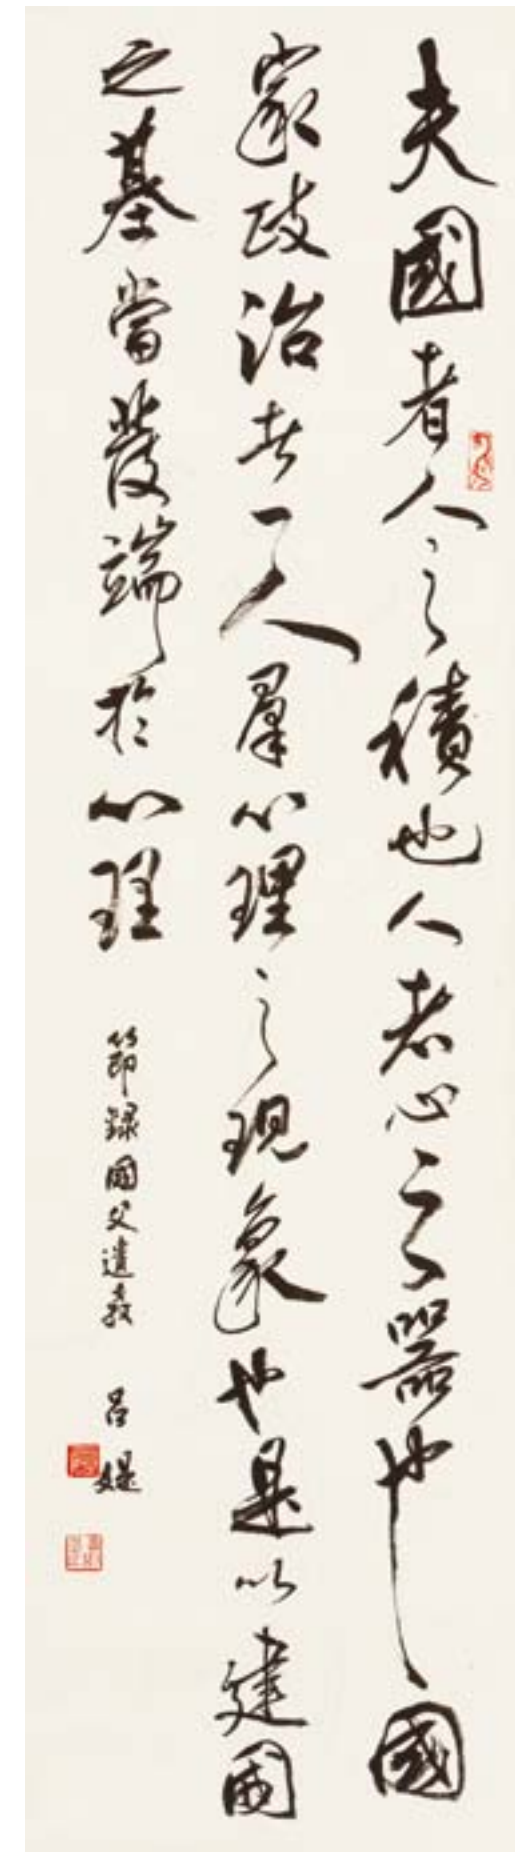 夫國者人之積也人者心之器也國
家政治者一人羣心理之現象也是以建國
之基當發端於心理
節錄國父遺教 呂媞